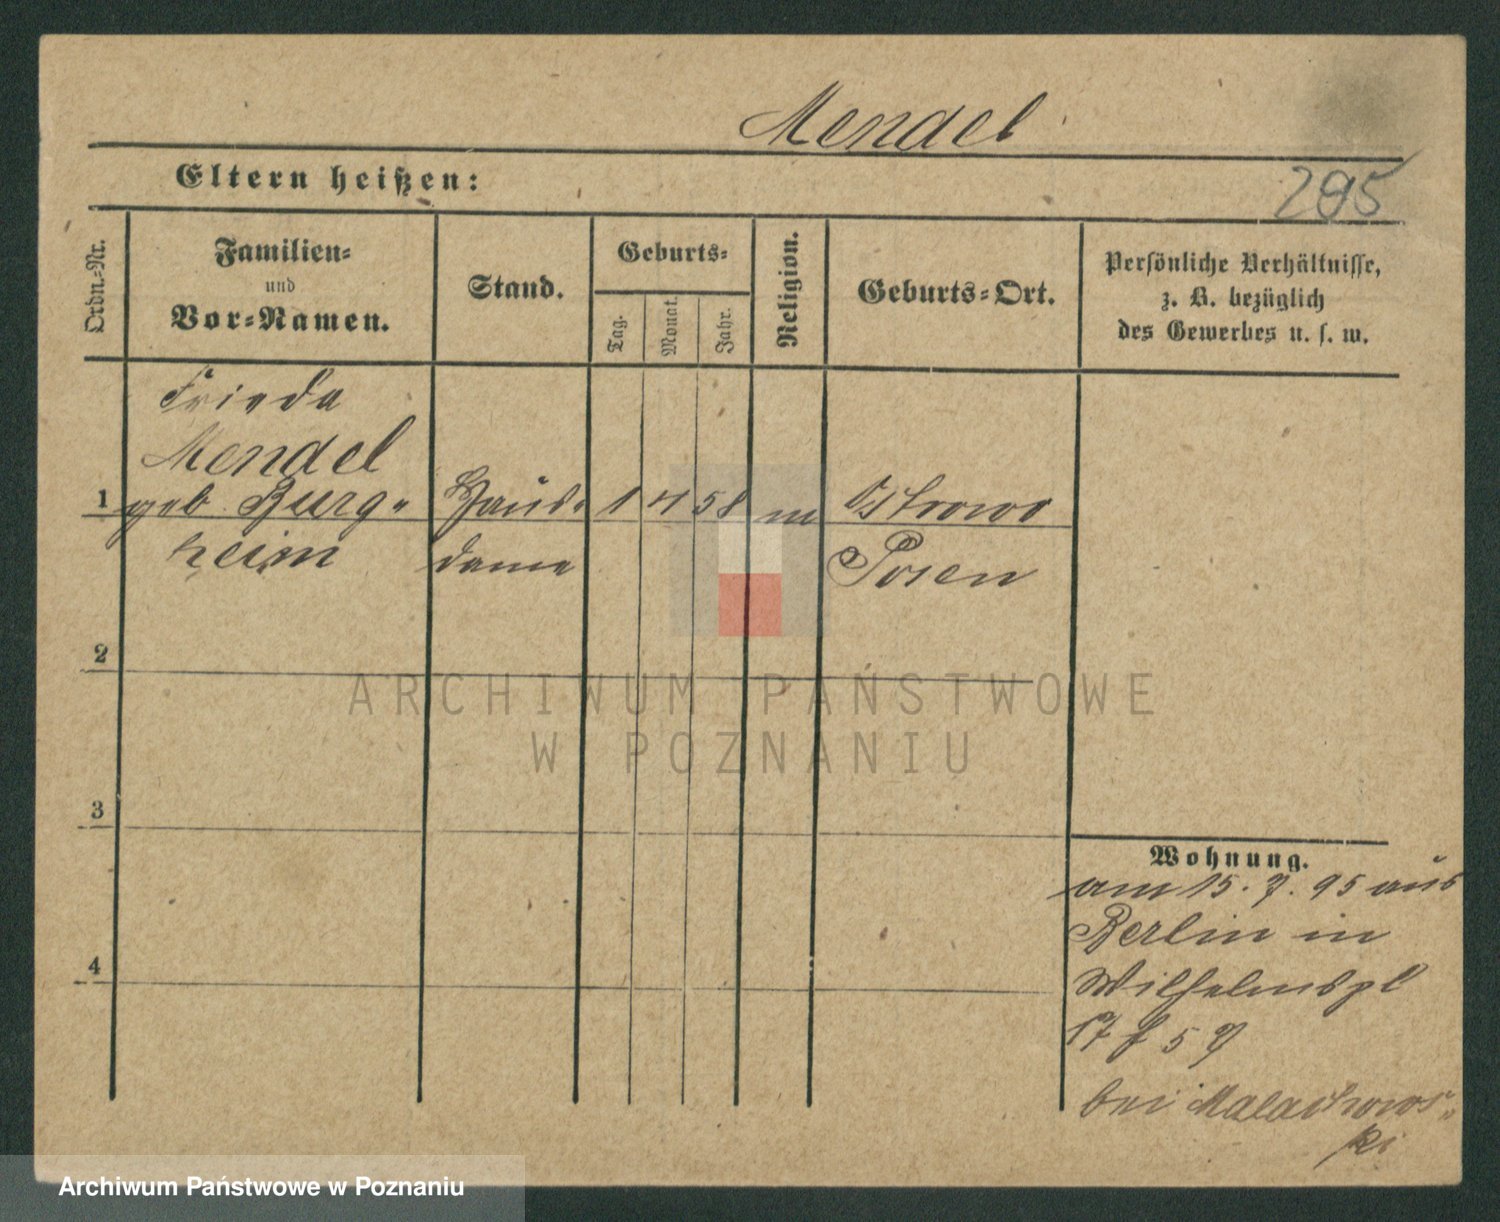 Mendel
Eltern heißen:
295
Ordn.-Nr.
Familien-
und
Vor-Namen.
Stand.
Geburts-
Tag.
Monat.
Jahr.
Religion.
Geburts-Ort.
Persönliche Verhältnisse,
z. B. bezüglich
des Gewerbes u. s. w.
Frieda
Mendel
1 geb Burg-
heim
Haus-
dame
1 4 58 m
Ostrowo
Posen
2
ARCHIWUM PAŃSTWOWE
W POZNANIU
3
4
Wohnung.
am 15. 7. 95 aus
Berlin in
Wilhelmspl
17
bei Malachows-
ki
Archiwum Państwowe w Poznaniu